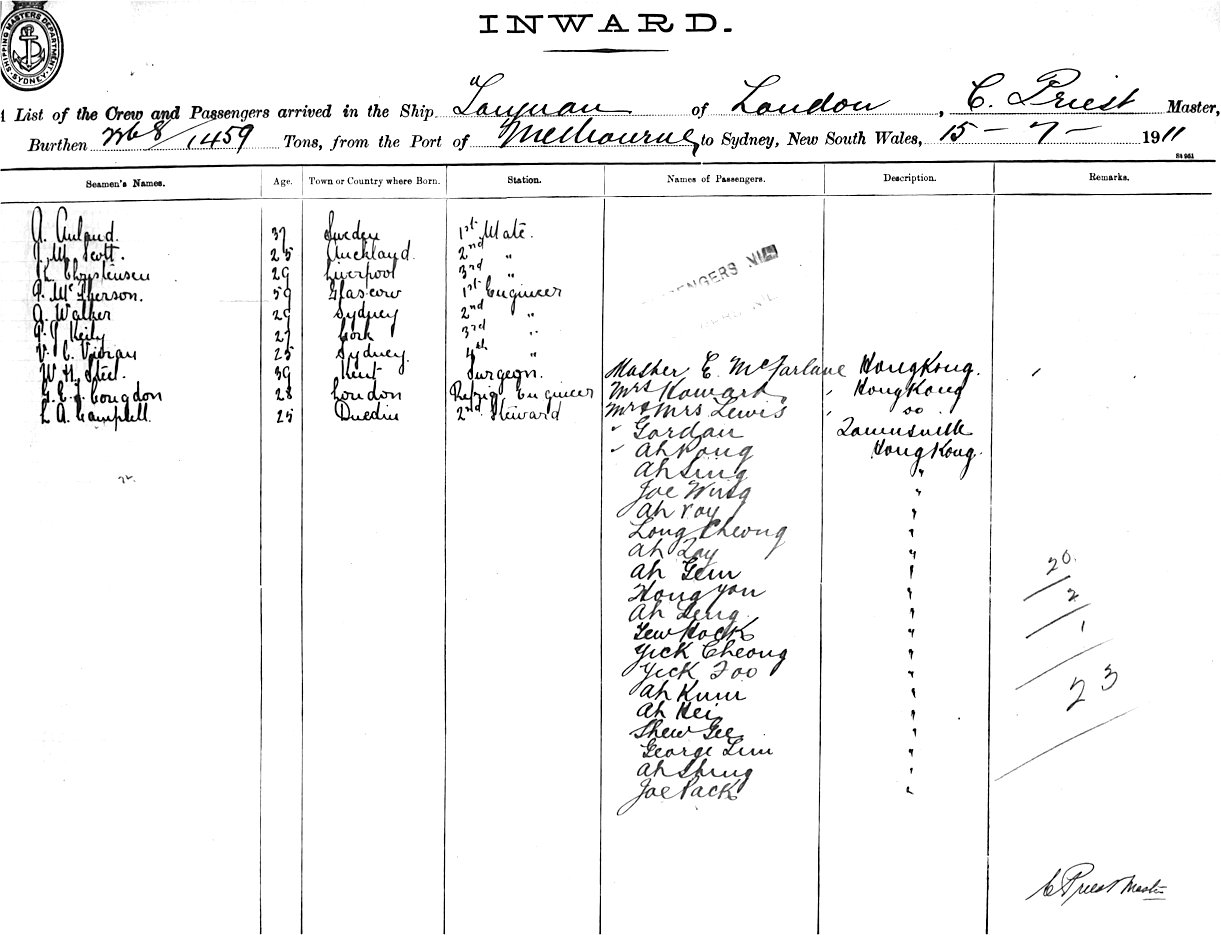 SHIPPING MASTERS DEPARTMENT SYDNEY
INWARD.
List of the Crew and Passengers arrived in the Ship "Taiyuan of London, C. Priest Master,
Burthen 1459 Tons, from the Port of Melbourne to Sydney, New South Wales, 15 - 7 - 1911
Seamen's Names. Age. Town or Country where Born. Station. Names of Passengers. Description. Remarks.
37 Sweden 1st Mate.
J. M. Scott. 25 Auckland. 2nd "
Christensen 29 Liverpool 3rd "
McPherson. 59 Glascow 1st Engineer
A. Walker 29 Sydney 2nd "
Keily 27 Cork 3rd "
V. C. 25 Sydney. 4th "
W. H. Steel. 39 Kent Surgeon. Master E. McFarlane HongKong.
G. E. J. Congdon 28 London Refrig Engineer Mrs Howard " HongKong
L. A. Campbell. 25 Dunedin 2nd Steward Mr & Mrs Lewis " do
" Gordan Townsville
" Ah Kong HongKong.
Ah Sing "
Joe Wing "
Ah Yoy "
Long Cheong "
Ah Zoy "
Ah Gem "
Hong Yon "
Ah Leng "
Gew Hock "
Yick Cheong "
Yick Foo "
Ah Kum "
Ah Kei "
Shew Gee "
George Lum "
Ah Shing "
Joe Pack "
PASSENGERS NIL
20
2
1
23
C Priest Master